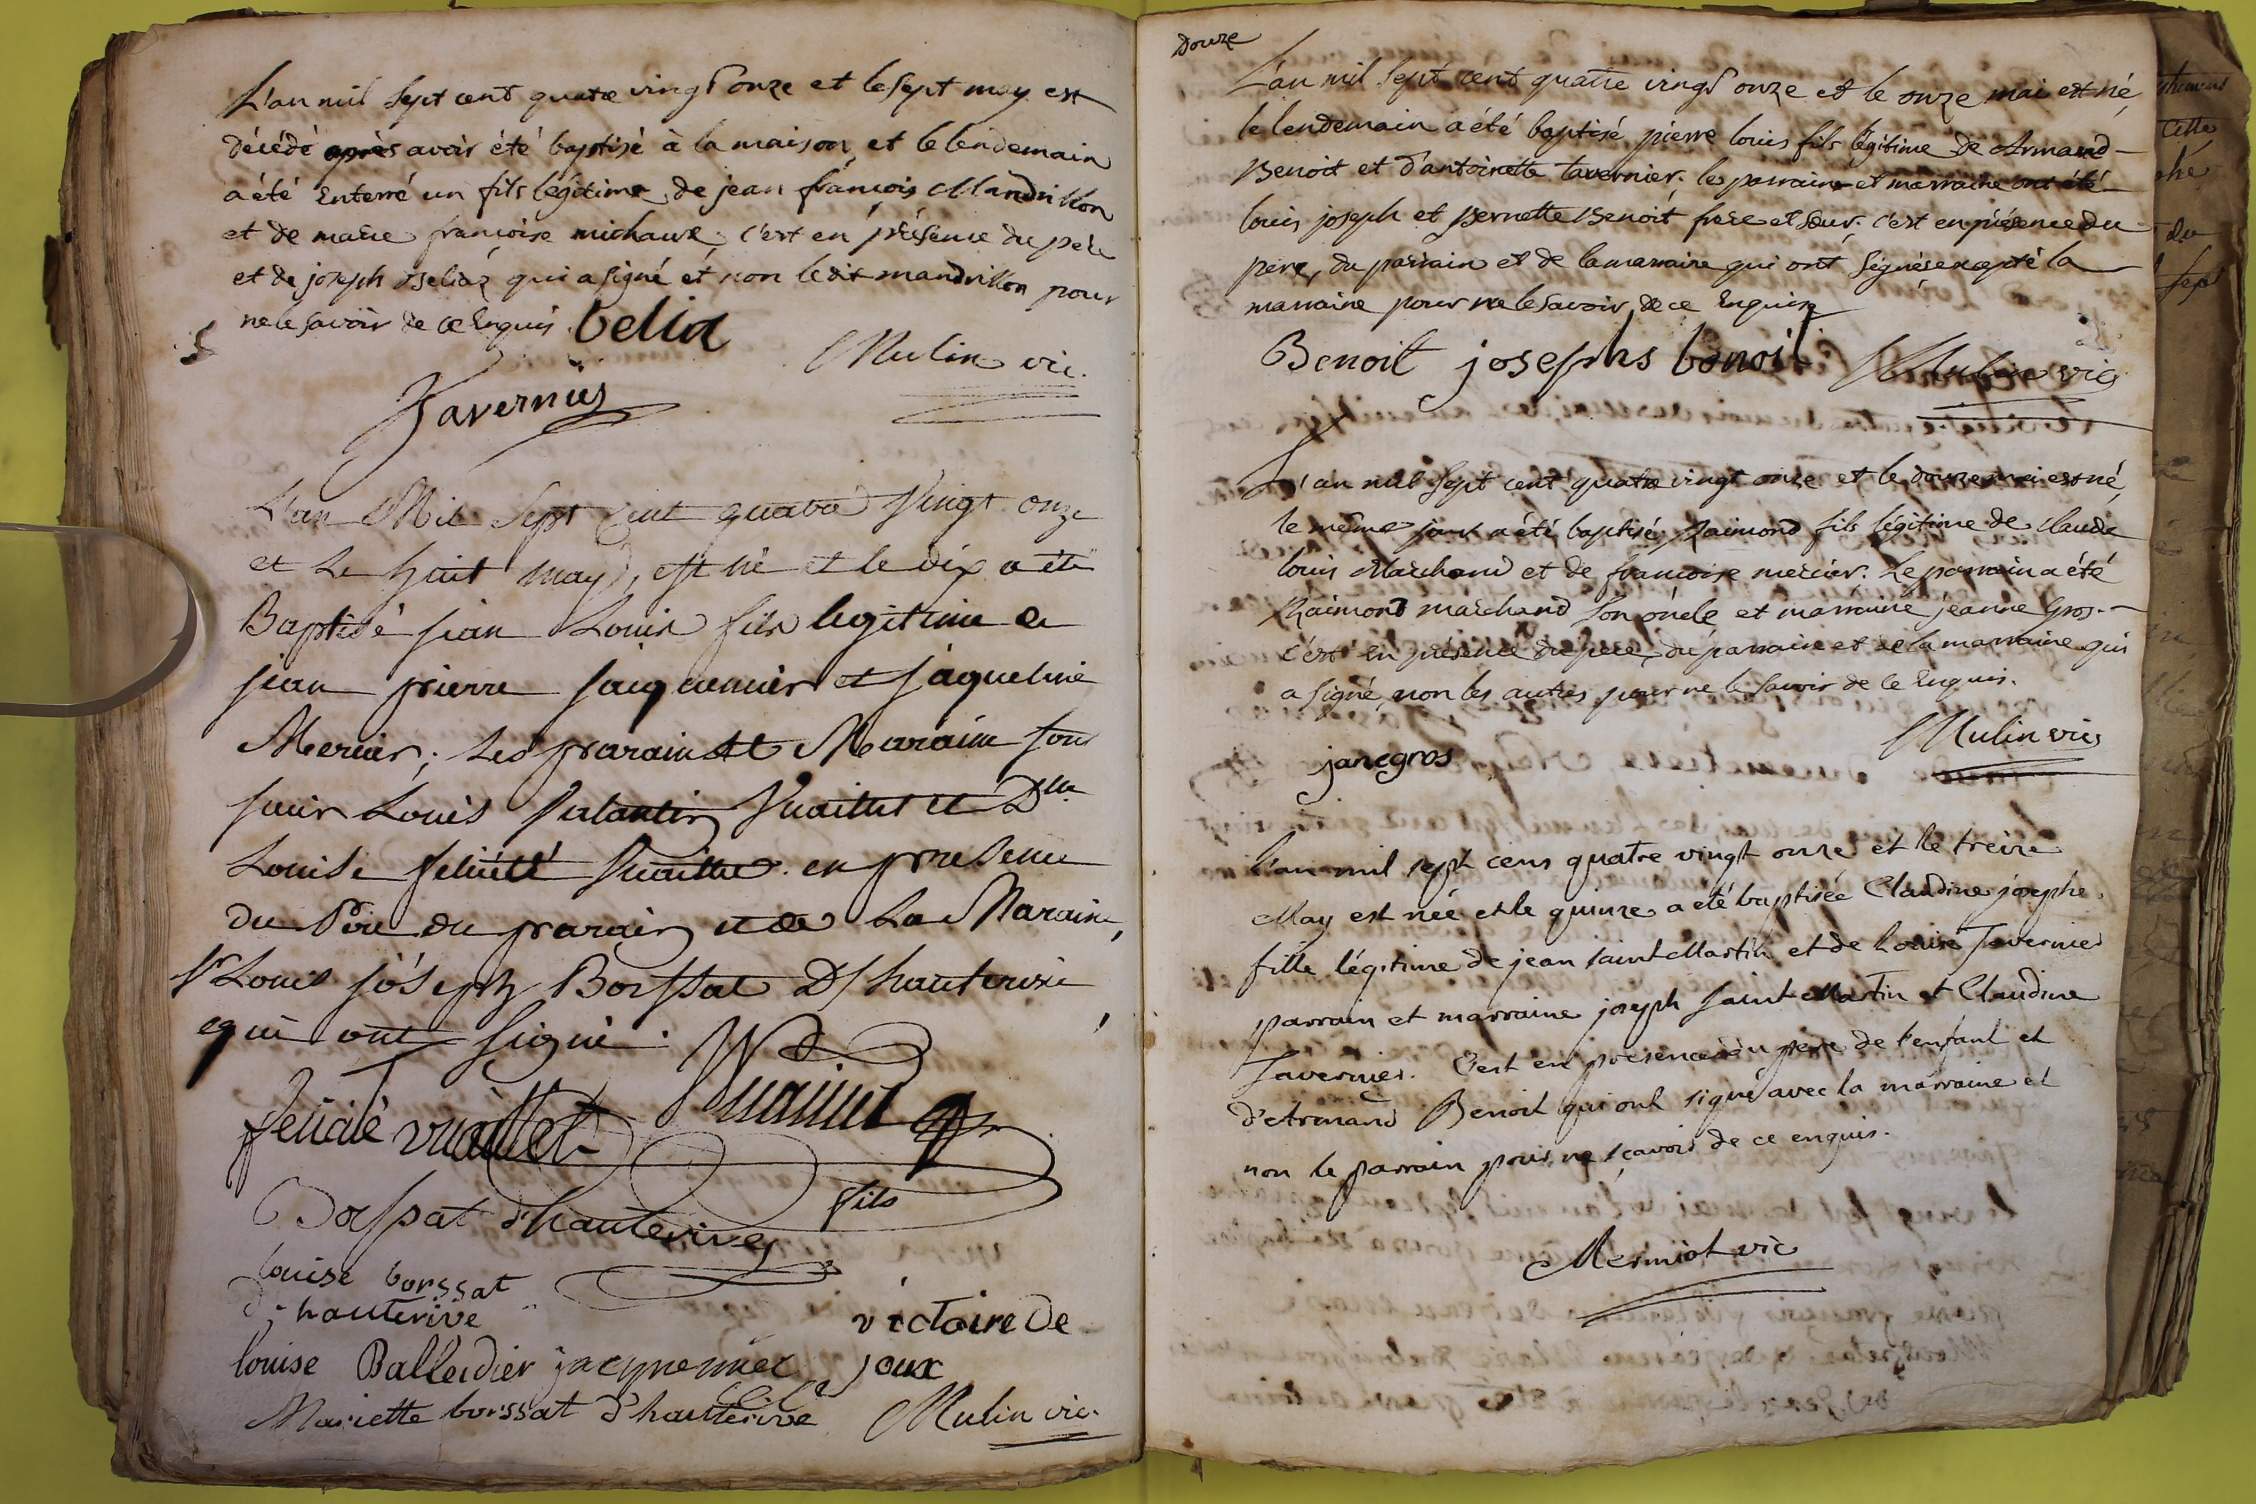 L'an mil sept cent quatre vingt onze et le sept may est
décédé après avoir été baptisé à la maison, et le lendemain
a été Enterré un fils légitime de jean françois Mandrillon
et de marie françoise michaux, c'est en présence du père
et de joseph Beliaz qui a signé et non ledit mandrillon pour
ne le savoir de ce Enquis. belia
Mulin vic.
Tavernier
L'an Mil Sept Cent quatre Vingt onze
et Le huit may, est né et le dix a été
Baptisé jean Louis fils legitime de
jean pierre jacquemier et jaqueline
Mercier; Les parain et Maraine sont
sieur Louis Valantin Vuaillet et Dlle
Louise felicité Vuaillet en presence
du Père du parain et de La Maraine,
sr Louis jóseph Borssat D'hauterive
qui ont signé.
felicité vuaillet Vuaillet
fils
Borssat d'hauterives
louise borssat
d'hauterive
victoire De
joux
louise Balleidier jacquemier
Mariette borssat d'hauterive
Mulin vic.
Douze
L'an mil sept cent quatre vingt onze et le onze mai est né,
le lendemain a été baptisé pierre louis fils légitime de Armand
Benoit et d'antoinette tavernier. les parrain et marraine ont été
louis joseph et Bernette Benoit frere et sœur. c'est en présence du
pere, du parrain et de la marraine qui ont signés excepté la
marraine pour ne le savoir de ce Enquise
Benoit josephs benoit Mulin vic
L'an mil sept cent quatre vingt onze et le douze mai est né,
le même jour a été baptisé, Raimond fils légitime de claude
louis Marchand et de françoise mercier. Le parrain a été
Raimond marchand son oncle et marraine jeanne Gros.
c'est En présence du pere, du parrain et de la marraine qui
a signé, non les autres pour ne le savoir de ce Enquis.
Mulin vic
jane gros
L'an mil sept cens quatre vingt onze et le treize
May est née et le quinze a été baptisée Claudine josephe
fille légitime de jean saint Martin et de Louise Tavernier
parrain et marraine joseph saint Martin et Claudine
Tavernier. C'est en présence du pere de l'enfant et
d'Armand Benoit qui ont signé avec la marraine et
non le parrain pour ne sçavoir de ce enquis.
Mermiot vic